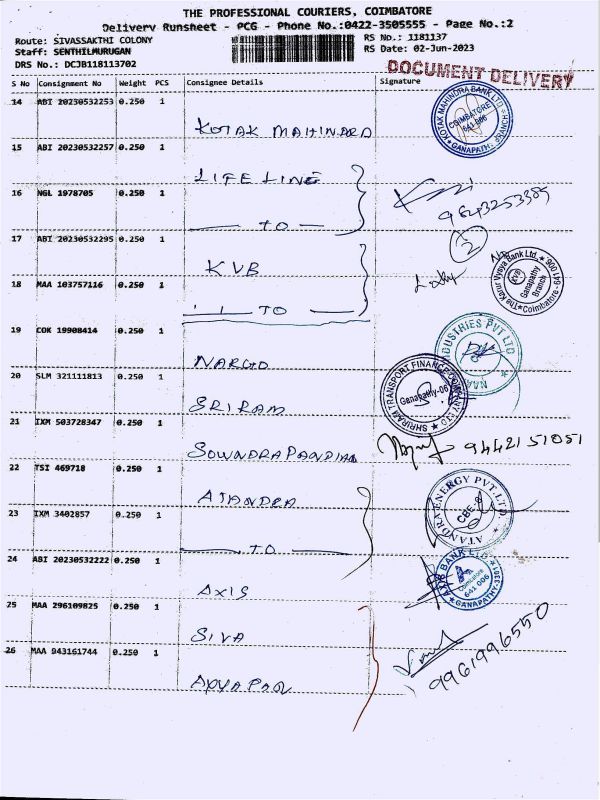 THE PROFESSIONAL COURIERS, COIMBATORE
Delivery Runsheet - PCG - Phone No.:0422-3505555 - Page No.:2
Route: SIVASSAKTHI COLONY
Staff: SENTHILMURUGAN
DRS No.: DCJB118113702
RS No.: 1181137
RS Date: 02-Jun-2023
DOCUMENT DELIVERY
S No Consignment No Weight PCS Consignee Details Signature
14 ABI 20230532253 0.250 1 KOTAK MAHINDRA
KOTAK MAHINDRA BANK LTD COIMBATORE 641 006 GANAPATHY BRANCH
15 ABI 20230532257 0.250 1 LIFE LINE
16 NGL 1978705 0.250 1 TO
17 ABT 20230532295 0.250 1 KVB
The Karur Vysya Bank Ltd. KVB Ganapathy Branch Coimbatore - 641 006
18 MAA 103757116 0.250 1 TO
19 COK 19908414 0.250 1 NARGO
INDUSTRIES PVT LTD
20 SLM 321111813 0.250 1 SRIRAM
SHRIRAM TRANSPORT FINANCE COMPANY LTD Ganapathy-06
21 IXM 503728347 0.250 1 SOWNDRAPANDIAN
9442151051
22 TSI 469718 0.250 1 ATANDRA
ATANDRA ENERGY PVT. LTD. CBE-6
23 IXM 3402857 0.250 1 TO
24 ABI 20230532222 0.250 1 AXIS
AXIS BANK LTD Coimbatore 641 006 GANAPATHY
25 MAA 296109825 0.250 1 SIVA
26 MAA 943161744 0.250 1
9961996550